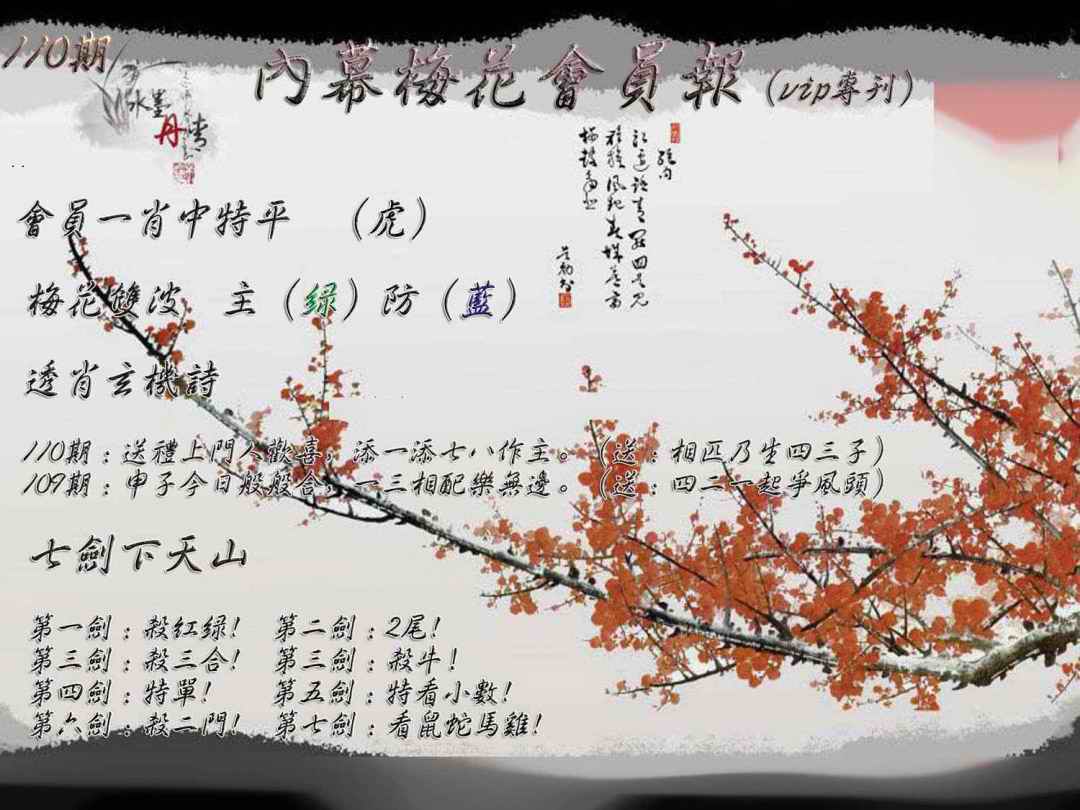 110期
水墨丹青
內幕梅花會員報(vip專刊)
會員一肖中特平 (虎)
梅花雙波 主(绿)防(藍)
透肖玄機詩
110期:送禮上門人歡喜,添一添七八作主。(送:相匹乃生四三子)
109期:申子今日般般合,一三相配樂無邊。(送:四二一起爭風頭)
七劍下天山
第一劍:殺红绿! 第二劍:2尾!
第三劍:殺三合! 第三劍:殺牛!
第四劍:特單! 第五劍:特看小數!
第六劍:殺二門! 第七劍:看鼠蛇馬雞!